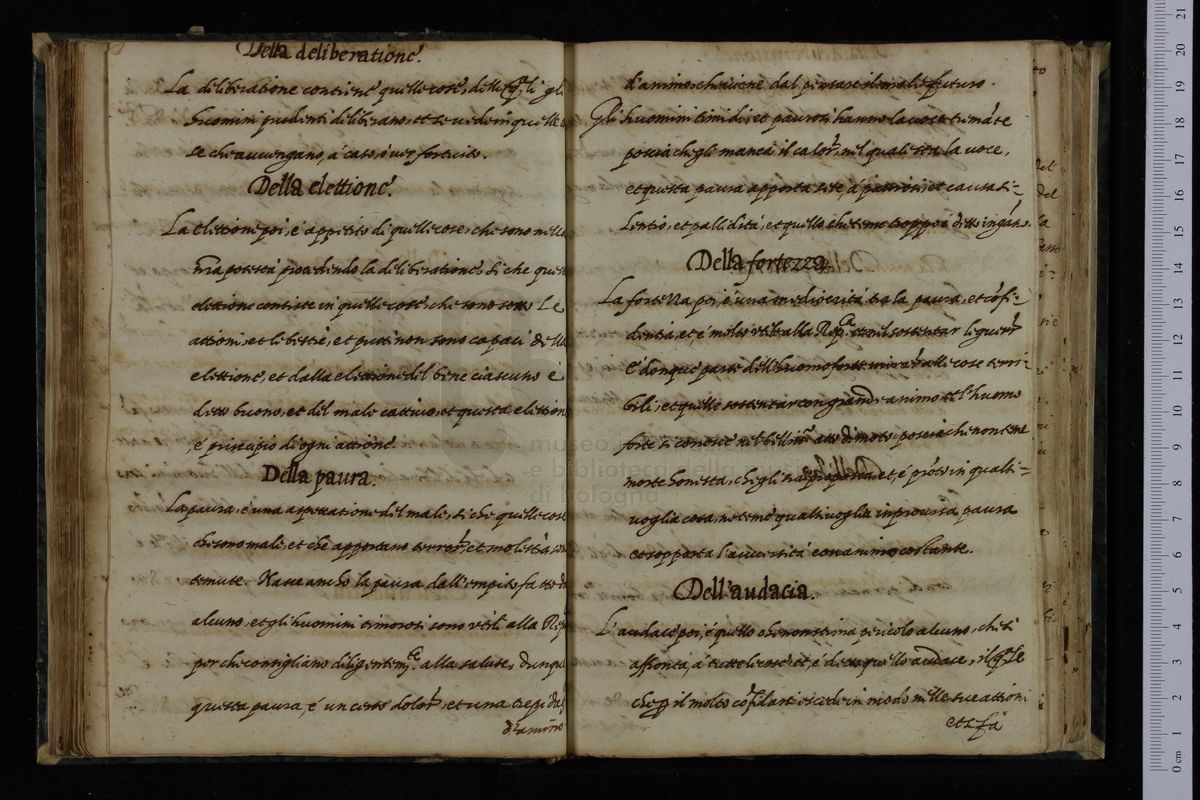 Della deliberatione.
La deliberatione contiene quelle cose, delle q̃li gli
huomini prudenti deliberano, et non in quelle
che avvengano, á caso, ó
Della elettione.
La elettione poi, é appetito di quelle cose, che sono nella
nr̃a potestá la deliberatione. Si che
elettione consiste in quelle cose, che sono Le
attioni, et le bestie, et putti non sono capaci della
elettione, et dalla elettione del bene ciascuno é
detto buono, et del male cattivo, et questa elettion
é, principio di ogni attione
Della paura.
La paura, é una aspettatione del male, si che quelle cose
che sono male, et che apportano terror, et molestia son
temute. Nasce ancho la paura dall'empito fatto da
alcuno, et gli huomini timorosi sono util alla Rep.
perche consigliano diligentem.te alla salute, dunque
questa paura, é un certo dolor, et una
d'animo
d'animo che viene dal pensare il male futuro.
Gli huomini timidi, et paurosi hanno la voce tremãte
poscia ch'egli manca il calor, nel quale sta la voce,
et questa paura apporta sete, á paurosi, et causa si=
lentio, et pallidità, et quello che teme troppo é detto
Della fortezza.
La fortezza poi, é una mediocritá tra la paura, et cõfi=
dentia, et é molto util alla Rep.ca et nel sostentar le guerr
E' donque parte dell'huomo forte alle cose terri=
bili, et quelle sostentar con grand'animo et l'huomo
forte si conosce nel bellicoso poscia che non teme
morte honesta, ch'egli sia proposta, et é prõto in qualsi=
voglia cosa, ne teme qualsivoglia improvisa paura
et sopporta l'avversitá con animo costante.
Dell'audacia.
L'audace poi, é quello che non stima pericolo alcuno, che s'
affronta, á tutte le cose et, é detto quello audace, il q̃le
che p il molto cõfidare eccede in modo nelle sue attioni